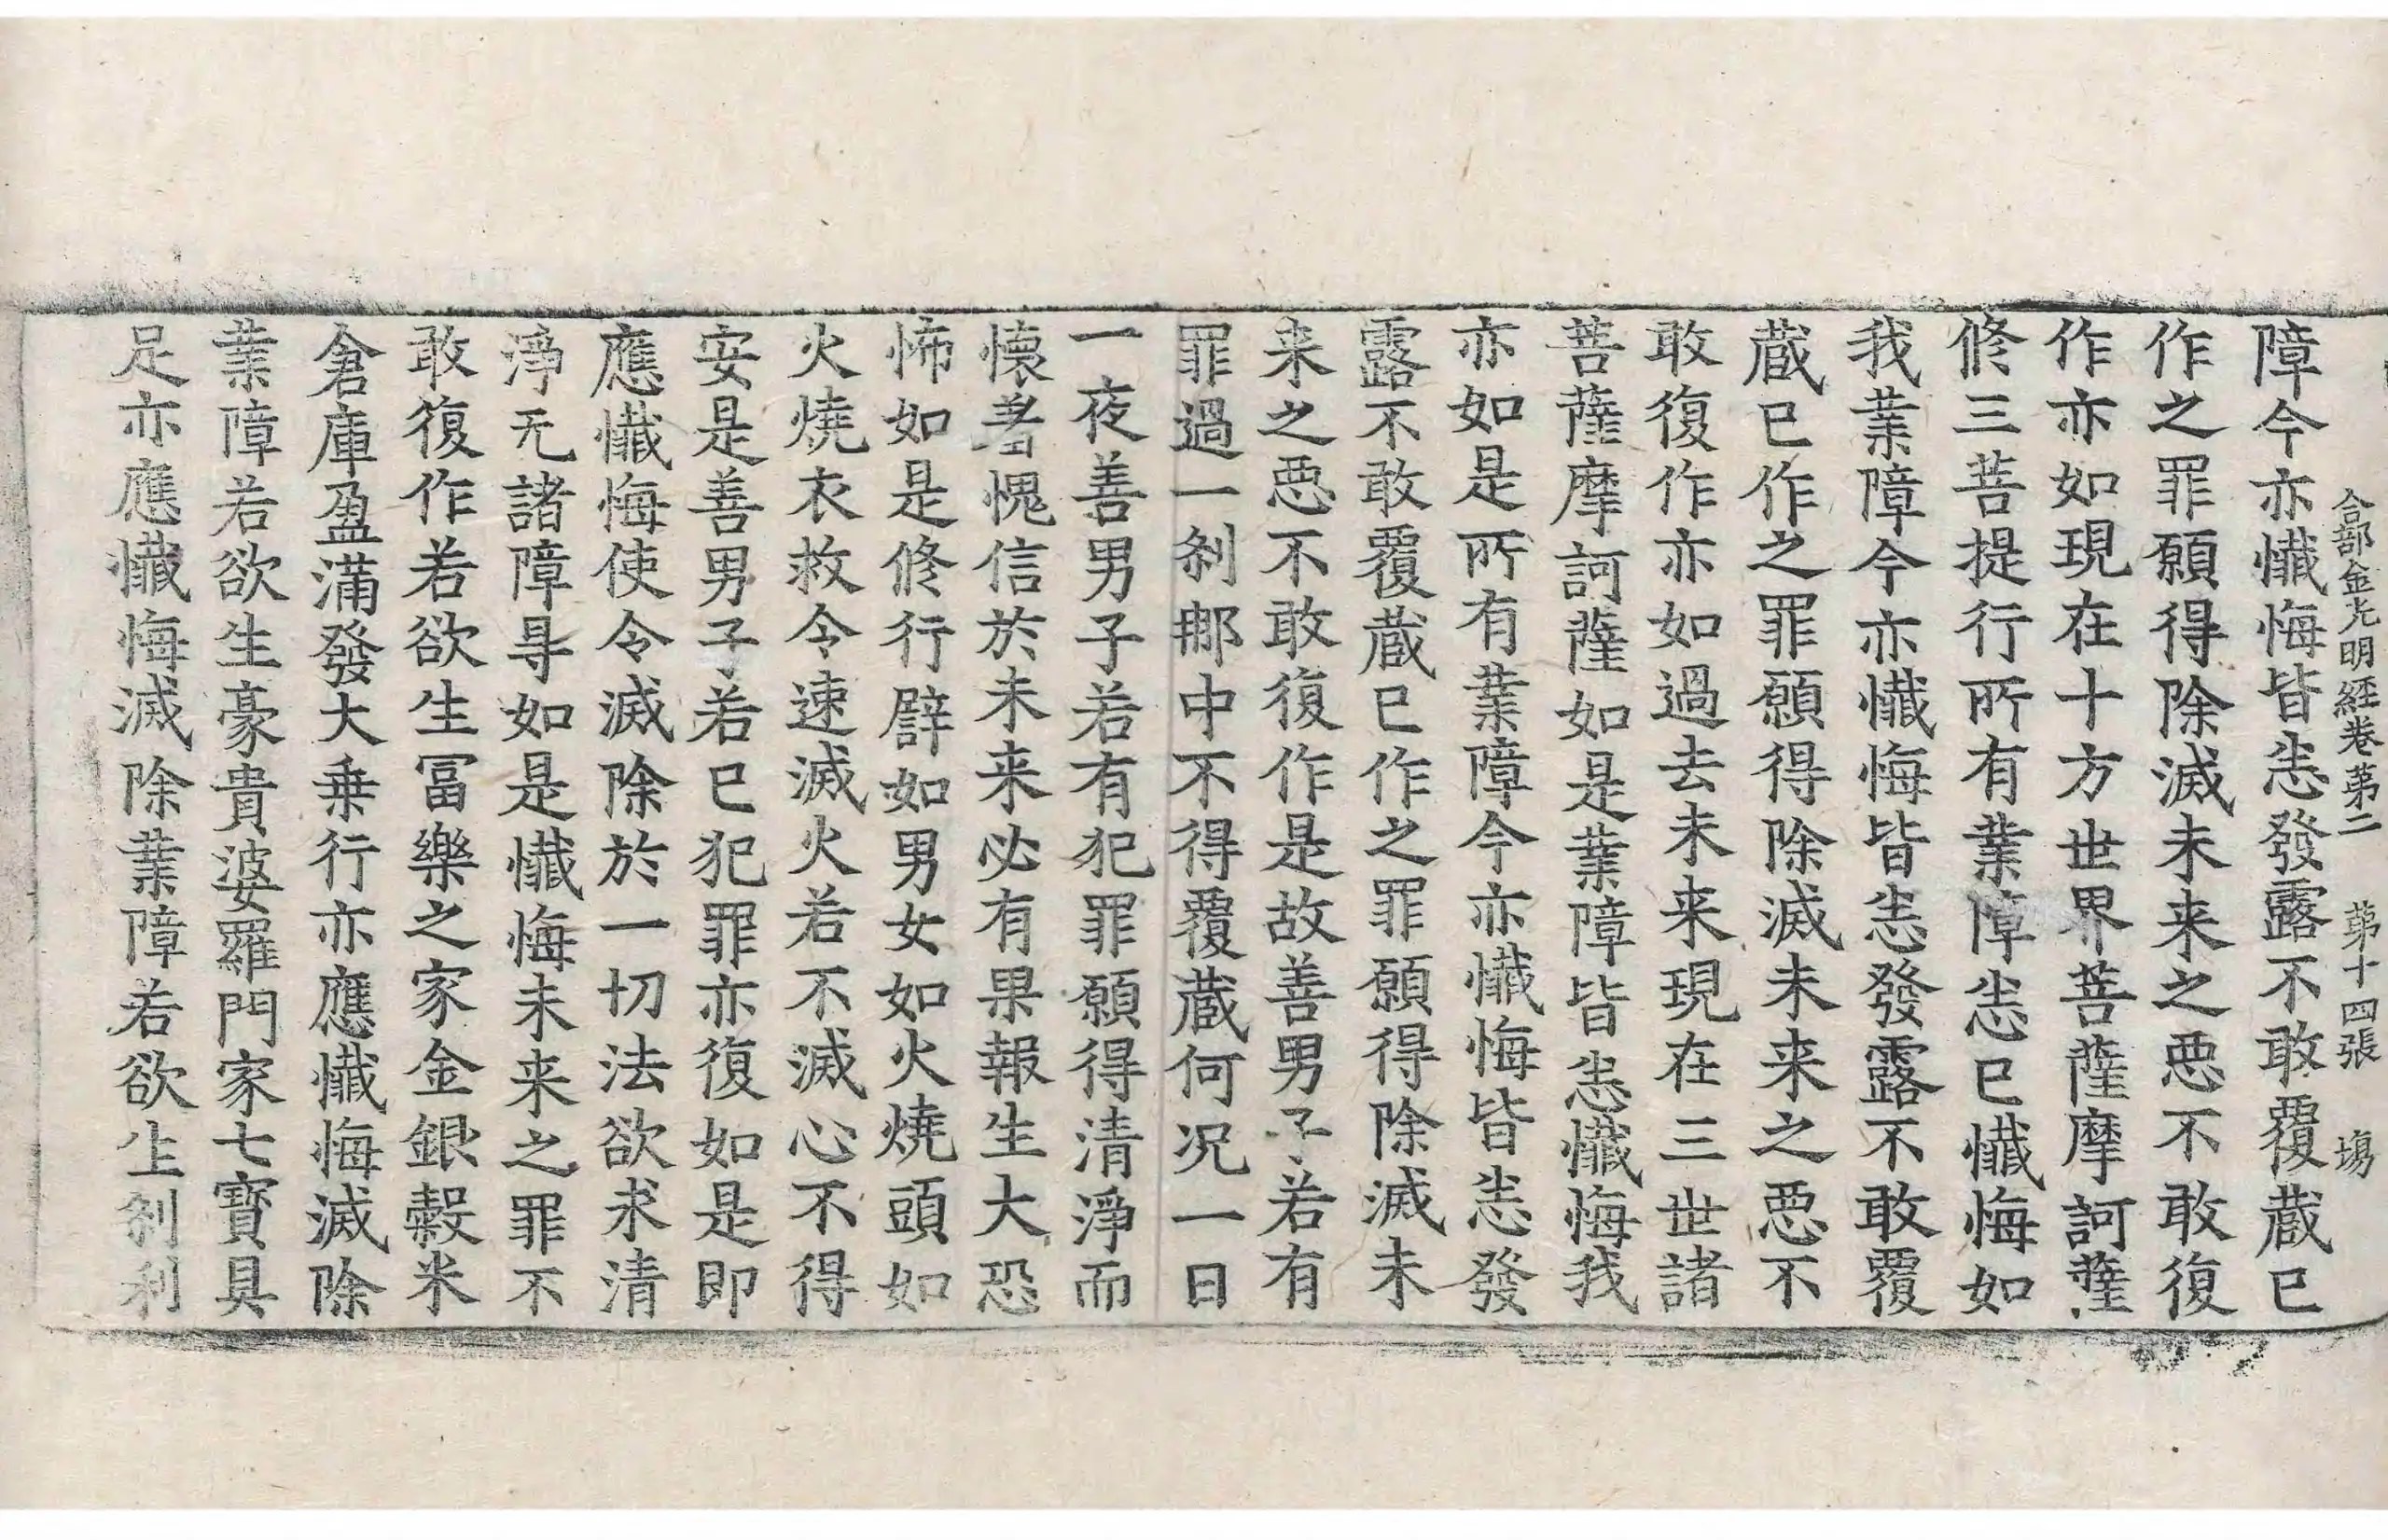 合部金光明経卷第二 第十四張 塲
障今亦懴悔皆悉發露不敢覆蔵已
作之罪願得除滅未来之悪不敢復
作亦如現在十方世界菩薩摩訶薩
修三菩提行所有業障悉已懴悔如
我業障今亦懴悔皆悉發露不敢覆
蔵已作之罪願得除滅未来之悪不
敢復作亦如過去未来現在三世諸
菩薩摩訶薩如是業障皆悉懴悔我
亦如是所有業障今亦懴悔皆悉發
露不敢覆蔵已作之罪願得除滅未
来之悪不敢復作是故善男子若有
罪過一刹那中不得覆蔵何况一日
一夜善男子若有犯罪願得清淨而
懐著愧信於未来必有果報生大恐
怖如是修行譬如男女如火燒頭如
火燒衣救令速滅火若不滅心不得
安是善男子若已犯罪亦復如是即
應懴悔使令滅除於一切法欲求清
淨无諸障㝵如是懴悔未来之罪不
敢復作若欲生冨樂之家金銀穀米
倉庫盈滿發大乗行亦應懴悔滅除
業障若欲生豪貴婆羅門家七寳具
足亦應懴悔滅除業障若欲生刹利